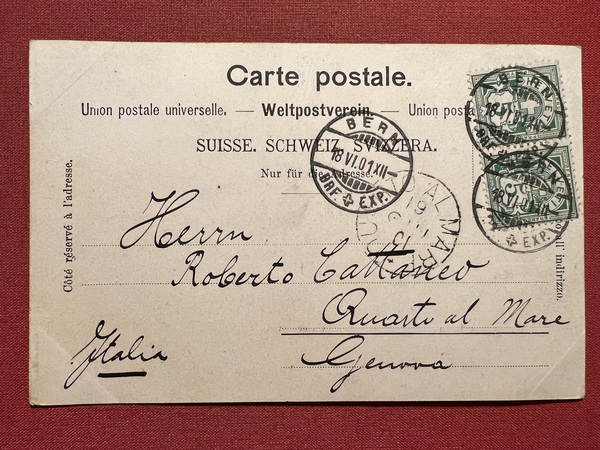 Carte postale.
Union postale universelle. — Weltpostverein. — Union posta
SUISSE. SCHWEIZ. SVIZZERA.
Nur für die Adresse.
Côté réservé à l'adresse.
all' indirizzo.
BERN
18 VI.01 XII
BRF. EXP.
BERN
18 VI.01 XII
BRF. EXP.
BERN
18 VI.01 XII
BRF. EXP.
5
Herrn
Roberto Cattaneo
Quarto al Mare
Genova
Italia